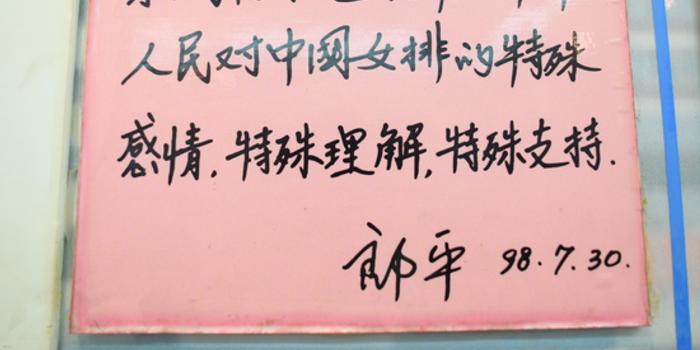 人民对中国女排的特殊
感情,特殊理解,特殊支持.
郎平 98.7.30.